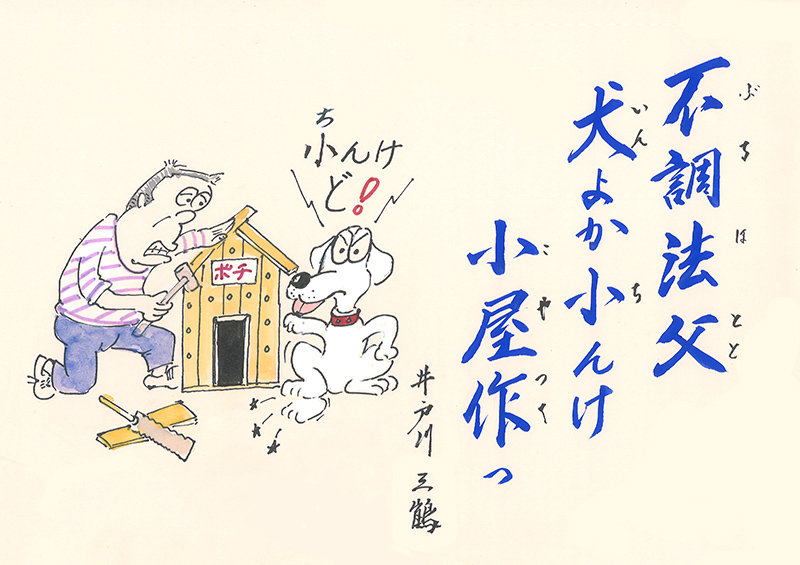 不調法父
ぶちほとと
犬よか小んけ
いんち
小屋作っ
こやつく
ち
小んけ
ど!
ポチ
井戸川 三鶴